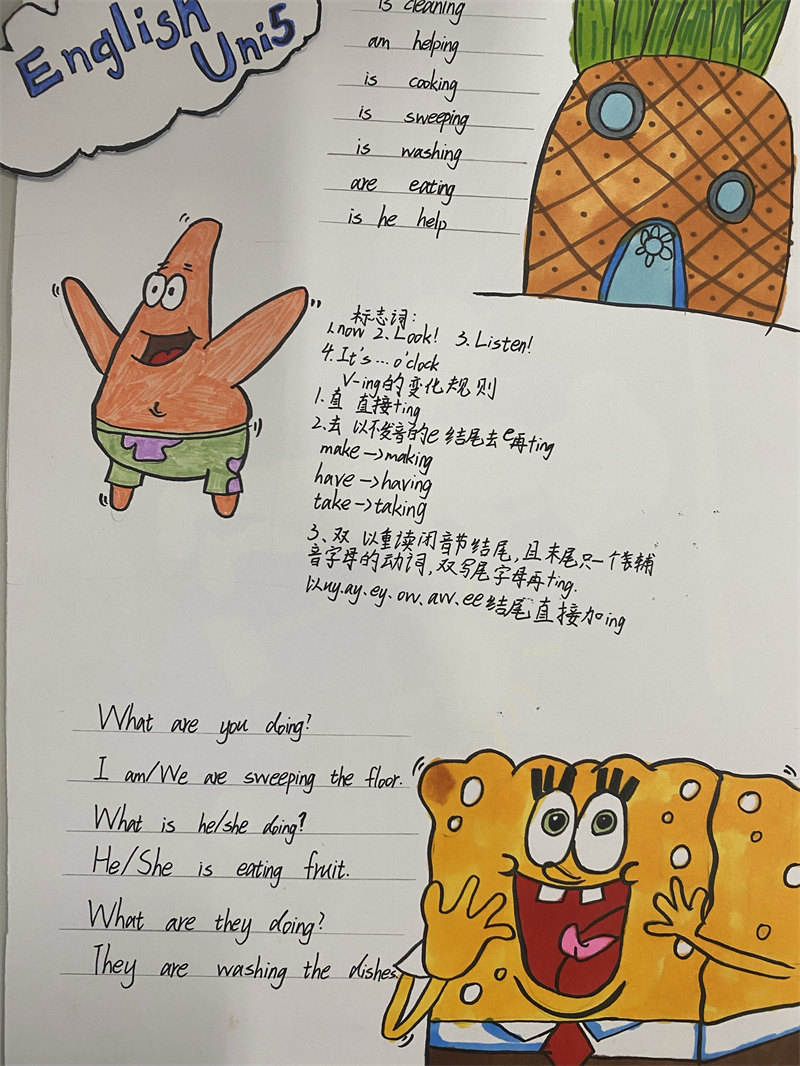 English
Uni5
is cleaning
am helping
is cooking
is sweeping
is washing
are eating
is he help
标志词:
1.now 2.Look! 3.Listen!
4.It's...o'clock
V-ing的变化规则
1.直 直接+ing
2.去 以不发音的e结尾去e再+ing
make→making
have→having
take→taking
3、双 以重读闭音节结尾,且末尾只一个辅
音字母的动词,双写尾字母再+ing.
ay、ey、ow、aw、ee结尾直接加ing
What are you doing?
I am/We are sweeping the floor.
What is he/she doing?
He/She is eating fruit.
What are they doing?
They are washing the dishes.